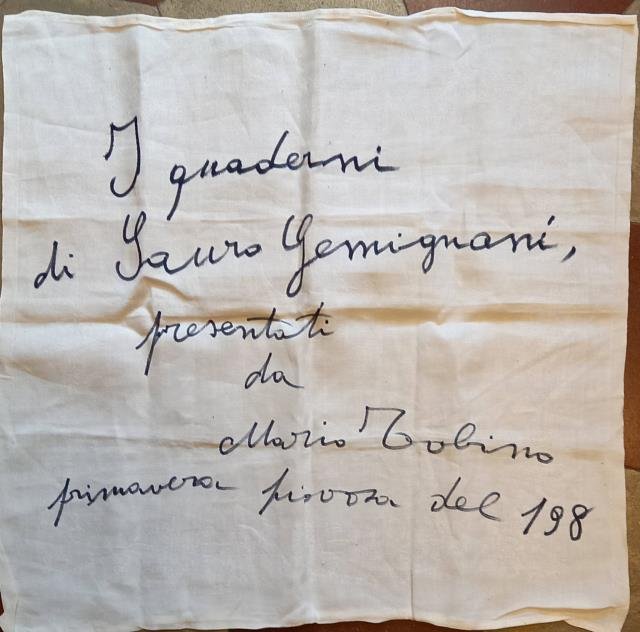 I quaderni
di Sauro Gemignani,
presentati
da
Mario Tobino
primavera piovosa del 198